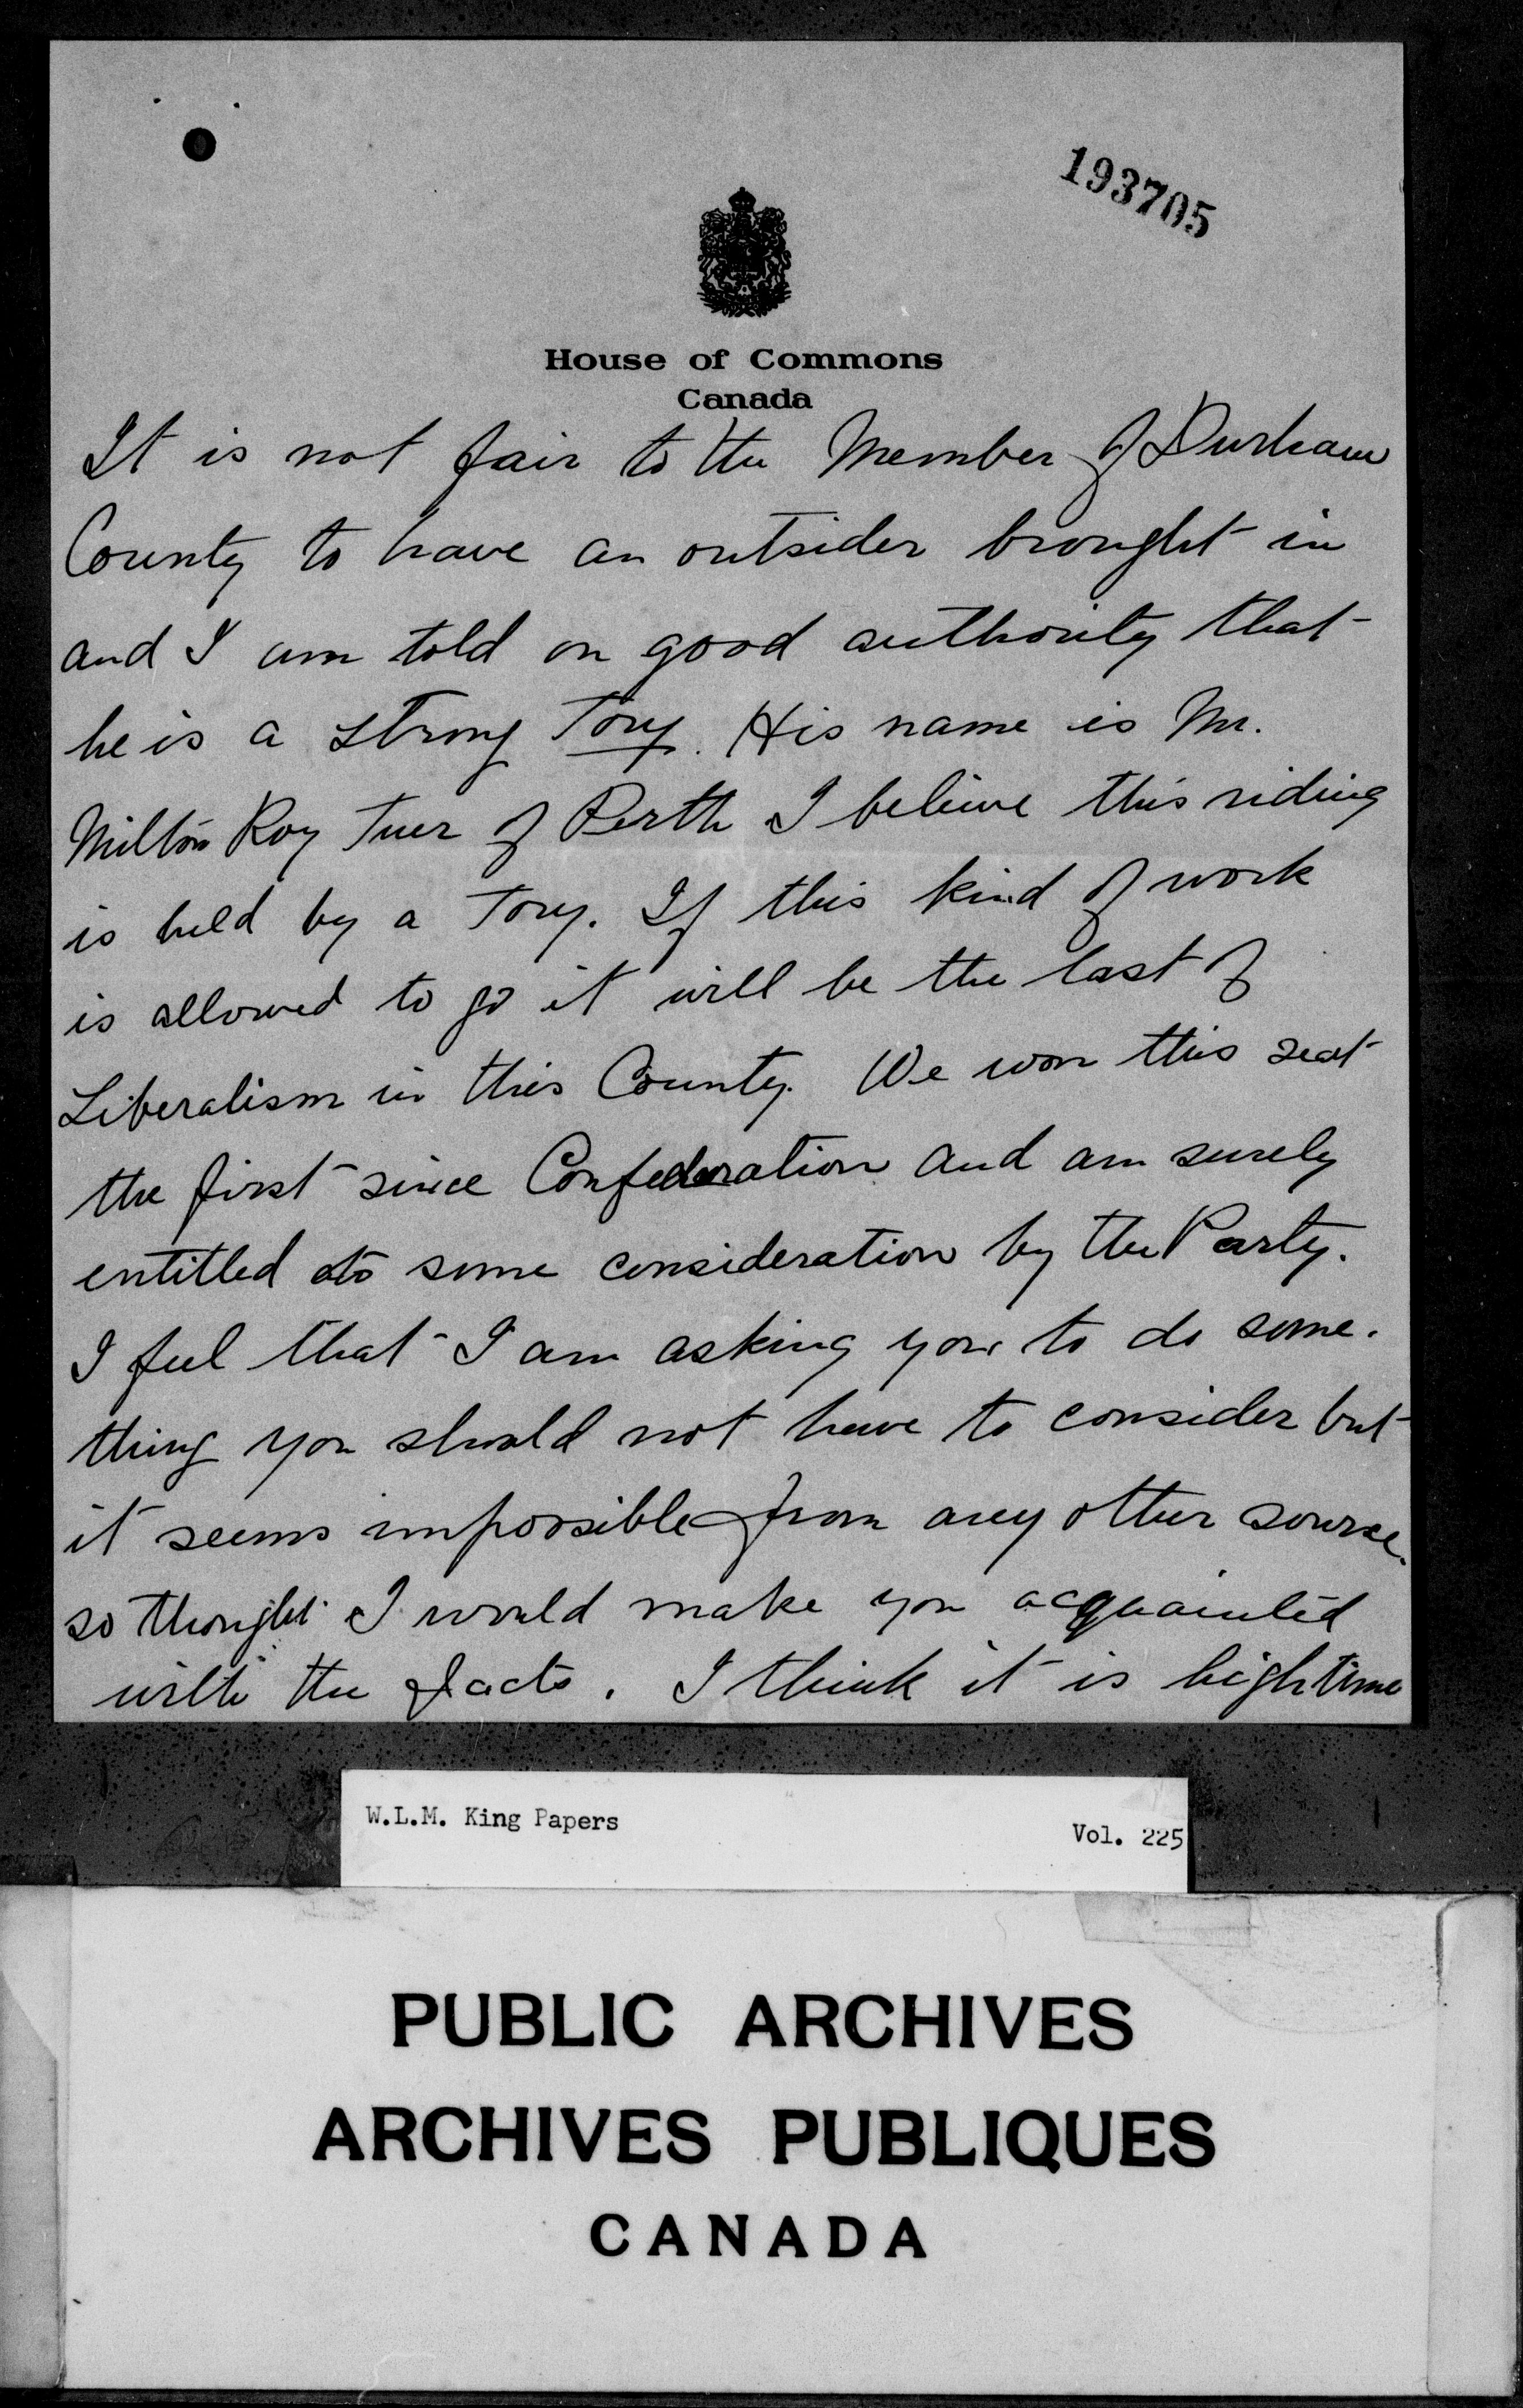 193705
House of Commons
Canada
It is not fair to the Member of Durham
County to have an outsider brought in
and I am told on good authority that
he is a strong Tory. His name is Mr.
Milton Roy Tuer of Perth I believe this riding
is held by a Tory. If this kind of work
is allowed to go it will be the last of
Liberalism in this County. We won this seat
the first since Confederation and am surely
entitled to some consideration by the Party.
I feel that I am asking you to do some-
thing you should not have to consider but
it seems impossible from any other sourse.
so thought I would make you acquainted
with the facts. I think it is high time
W.L.M. King Papers
Vol. 225
PUBLIC ARCHIVES
ARCHIVES PUBLIQUES
CANADA